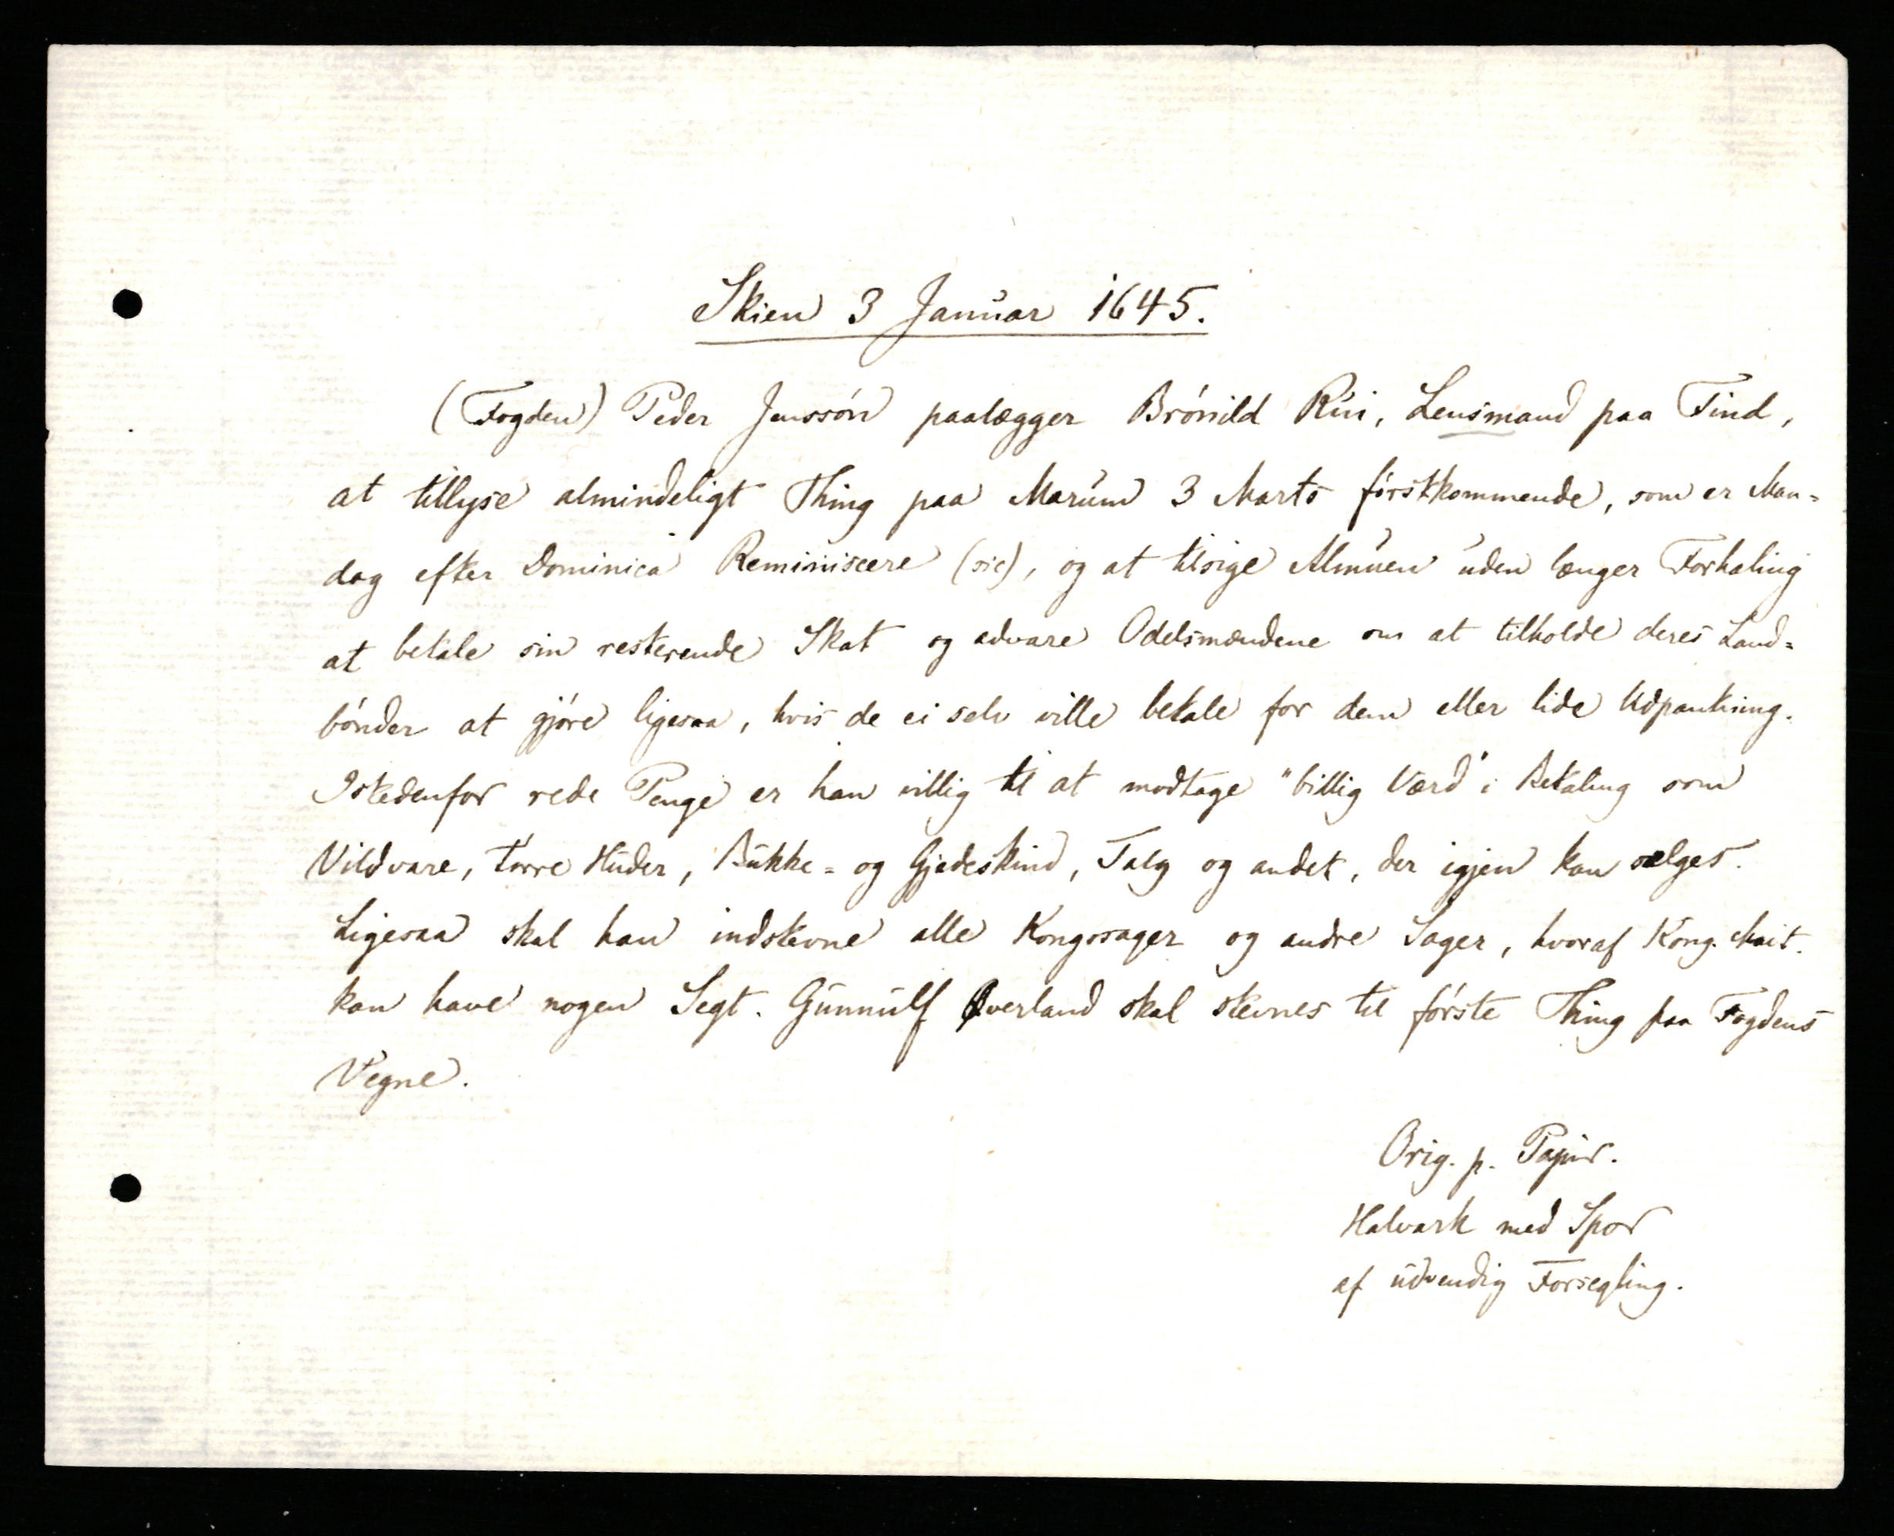 Skien 3 Januar 1645.
(Fogden) Peder Jenssón paalægger Brónild Rui, Lensmand paa Tind,
at tillyse almindeligt Thing paa Marum 3 Marts fórstkommende, som er Man=
dag efter Dominica Reminiscere (sic), og at tilsige Almuen uden længer Forhaling
at betale sin resterende Skat og advare Odelsmændene om at tilholde deres Land=
bónder at gjóre ligesaa, hvis de ei selv ville betale for dem eller lide Udpantning.
Istedenfor rede Penge er han villig til at modtage "billig Værd" i Betaling som
Vildvare, tórre Huder, Bukke= og Gjedeskind, Talg og andet, der igjen kan sælges.
Ligesaa skal han indstevne alle Kongssager og andre Sager, hvoraf Kong. Mait.
kan have nogen Segt. Gunnulf Øverland skal stevnes til fórste Thing paa Fogdens
Vegne.
Orig. p. Papir.
Halvark med Spor
af udvendig Forsegling.